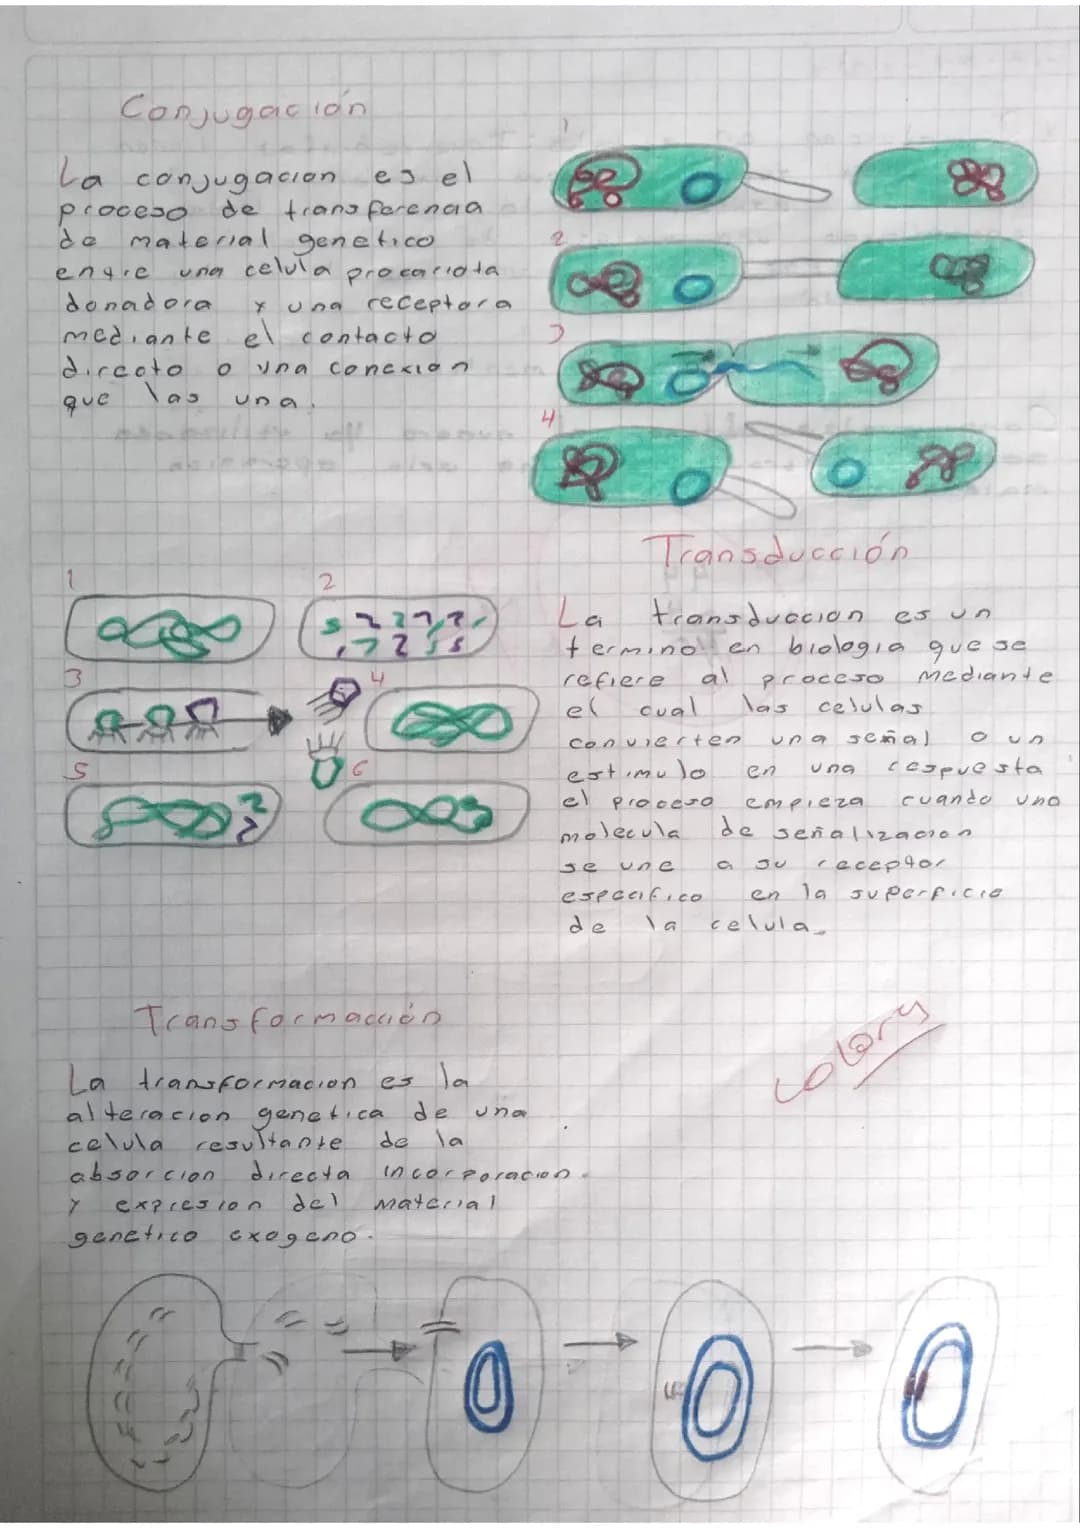 Conjugación
La conjugacion es el
proceso de transferencia
de material genetico
entre una celula procariota
donadora y una receptora
mediante el contacto
directo o una conexion
que las una.
1
2
3
4
Transducción
La transduccion es un
termino en biologia que se
refiere al proceso mediante
el cual las celulas
convierten una señal o un
estimulo en una respuesta
el proceso empieza cuando una
molecula de señalizacion
se une a su receptor
especifico en la superficie
de la celula.
1
2
3
4
5
6
Transformación
La transformacion es la
alteracion genetica de una
celula resultante de la
absorcion directa incorporacion
y expresion del material
genetico exogeno.